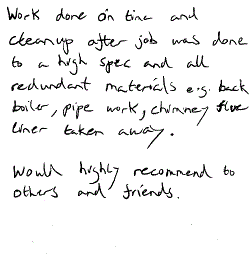 Work done on time and
cleanup after job was done
to a high spec and all
redundant materials e.g. back
boiler, pipe work, chimney flue
liner taken away.
Would highly recommend to
others and friends.